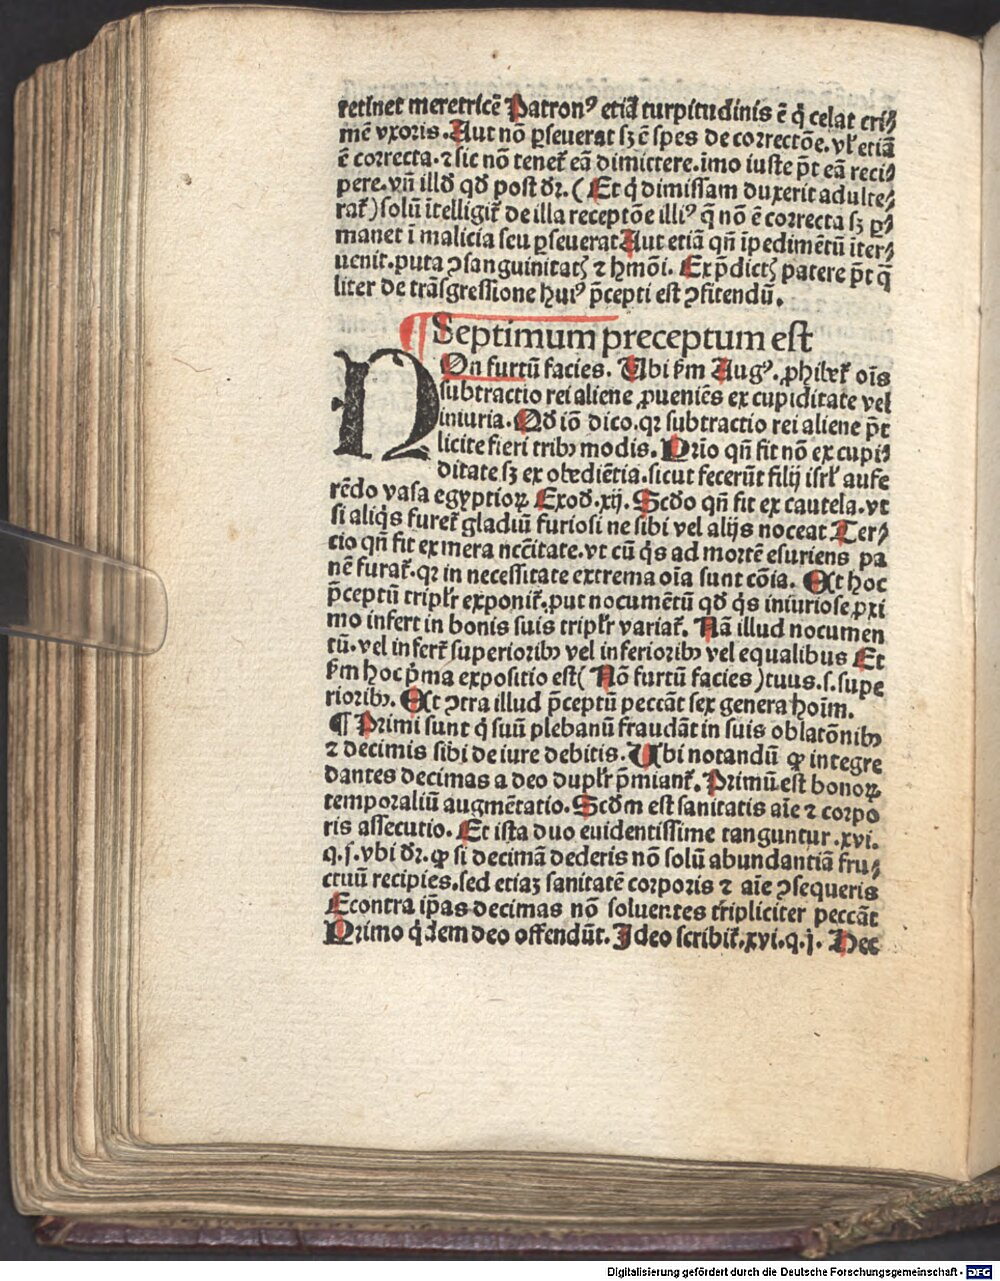 retinet meretricē Patronꝰ etiā turpitudinis ē q̇ celat cri⸗
mē vxoris. Aut nō ꝑseuerat sꝫ ē spes de correctōe. vl̕ etiā
ē correcta. ⁊ sic nō tenet̕ eā dimittere. imo iuste p̄t eā reci⸗
pere. vn̄ illd̕ qd̕ post dr̄. ( Et q̇ dimissam duxerit adulte⸗
rat̕ ) solū ītelligit̕ de illa receptōe illiꝰ q̄ nō ē correcta sꝫ ꝑ⸗
manet ī malicia seu ꝑseuerat Aut etiā qn̄ īpedimētū īter⸗
uenit. puta ↄsanguinitatꝭ ⁊ hmōi. Ex p̄dictꝭ patere p̄t q̄
liter de trāsgressione huiꝰ p̄cepti est ↄfitendū.
¶ Septimum preceptum est
NOn furtū facies. Ubi ẜm Augꝰ. ꝓhibet̕ oīs
subtractio rei aliene ꝓueniēs ex cupiditate vel
iniuria. Qd̕ iō dico. qꝛ subtractio rei aliene p̄t
licite fieri tribꝰ modis. Prīo qn̄ fit nō ex cupi⸗
ditate sꝫ ex obediētia. sicut fecerūt filij isrl̕ aufe
rēdo vasa egyptioꝝ Exod̕. xij. Scd̕o qn̄ fit ex cautela. vt
si aliq̇s furet̕ gladiū furiosi ne sibi vel alijs noceat Ter⸗
cio qn̄ fit ex mera nccītate. vt cū q̇s ad mortē esuriens pa
nē furat̕. qꝛ in necessitate extrema oīa sunt cōia. Et hoc
p̄ceptū tripl̕r exponit̕. ꝓut nocumētū qd̕ q̇s iniuriose ꝓxi
mo infert in bonis suis tripl̕r variat̕. Nā illud nocumen
tū. vel infert̕ superioribꝰ vel inferioribꝰ vel equalibus Et
ẜm hoc p̄ma expositio est ( Nō furtū facies ) tuus. s. supe
rioribꝰ. Et ↄtra illud p̄ceptū peccāt sex genera hoīm.
¶ Primi sunt q̇ suū plebanū fraudāt in suis oblatōnibꝰ
⁊ decimis sibi de iure debitis. Ubi notandū ꝙ integre
dantes decimas a deo dupl̕r p̄miant̕. Primū est bonoꝝ
temporaliū augmētatio. Scd̕m est sanitatis aīe ⁊ corpo
ris assecutio. Et ista duo euidentissime tanguntur. xvi.
q. j. vbi dr̄. ꝙ si decimā dederis nō solū abundantiā fru⸗
ctuū recipies. sed etiaꝫ sanitatē corporis ⁊ aīe ↄsequeris
Econtra ip̄as decimas nō soluentes tripliciter peccāt
Primo q̇dem deo offendūt. Ideo scribit̕. xvi. q. j. Dec
Digitalisierung gefördert durch die Deutsche Forschungsgemeinschaft - DFG